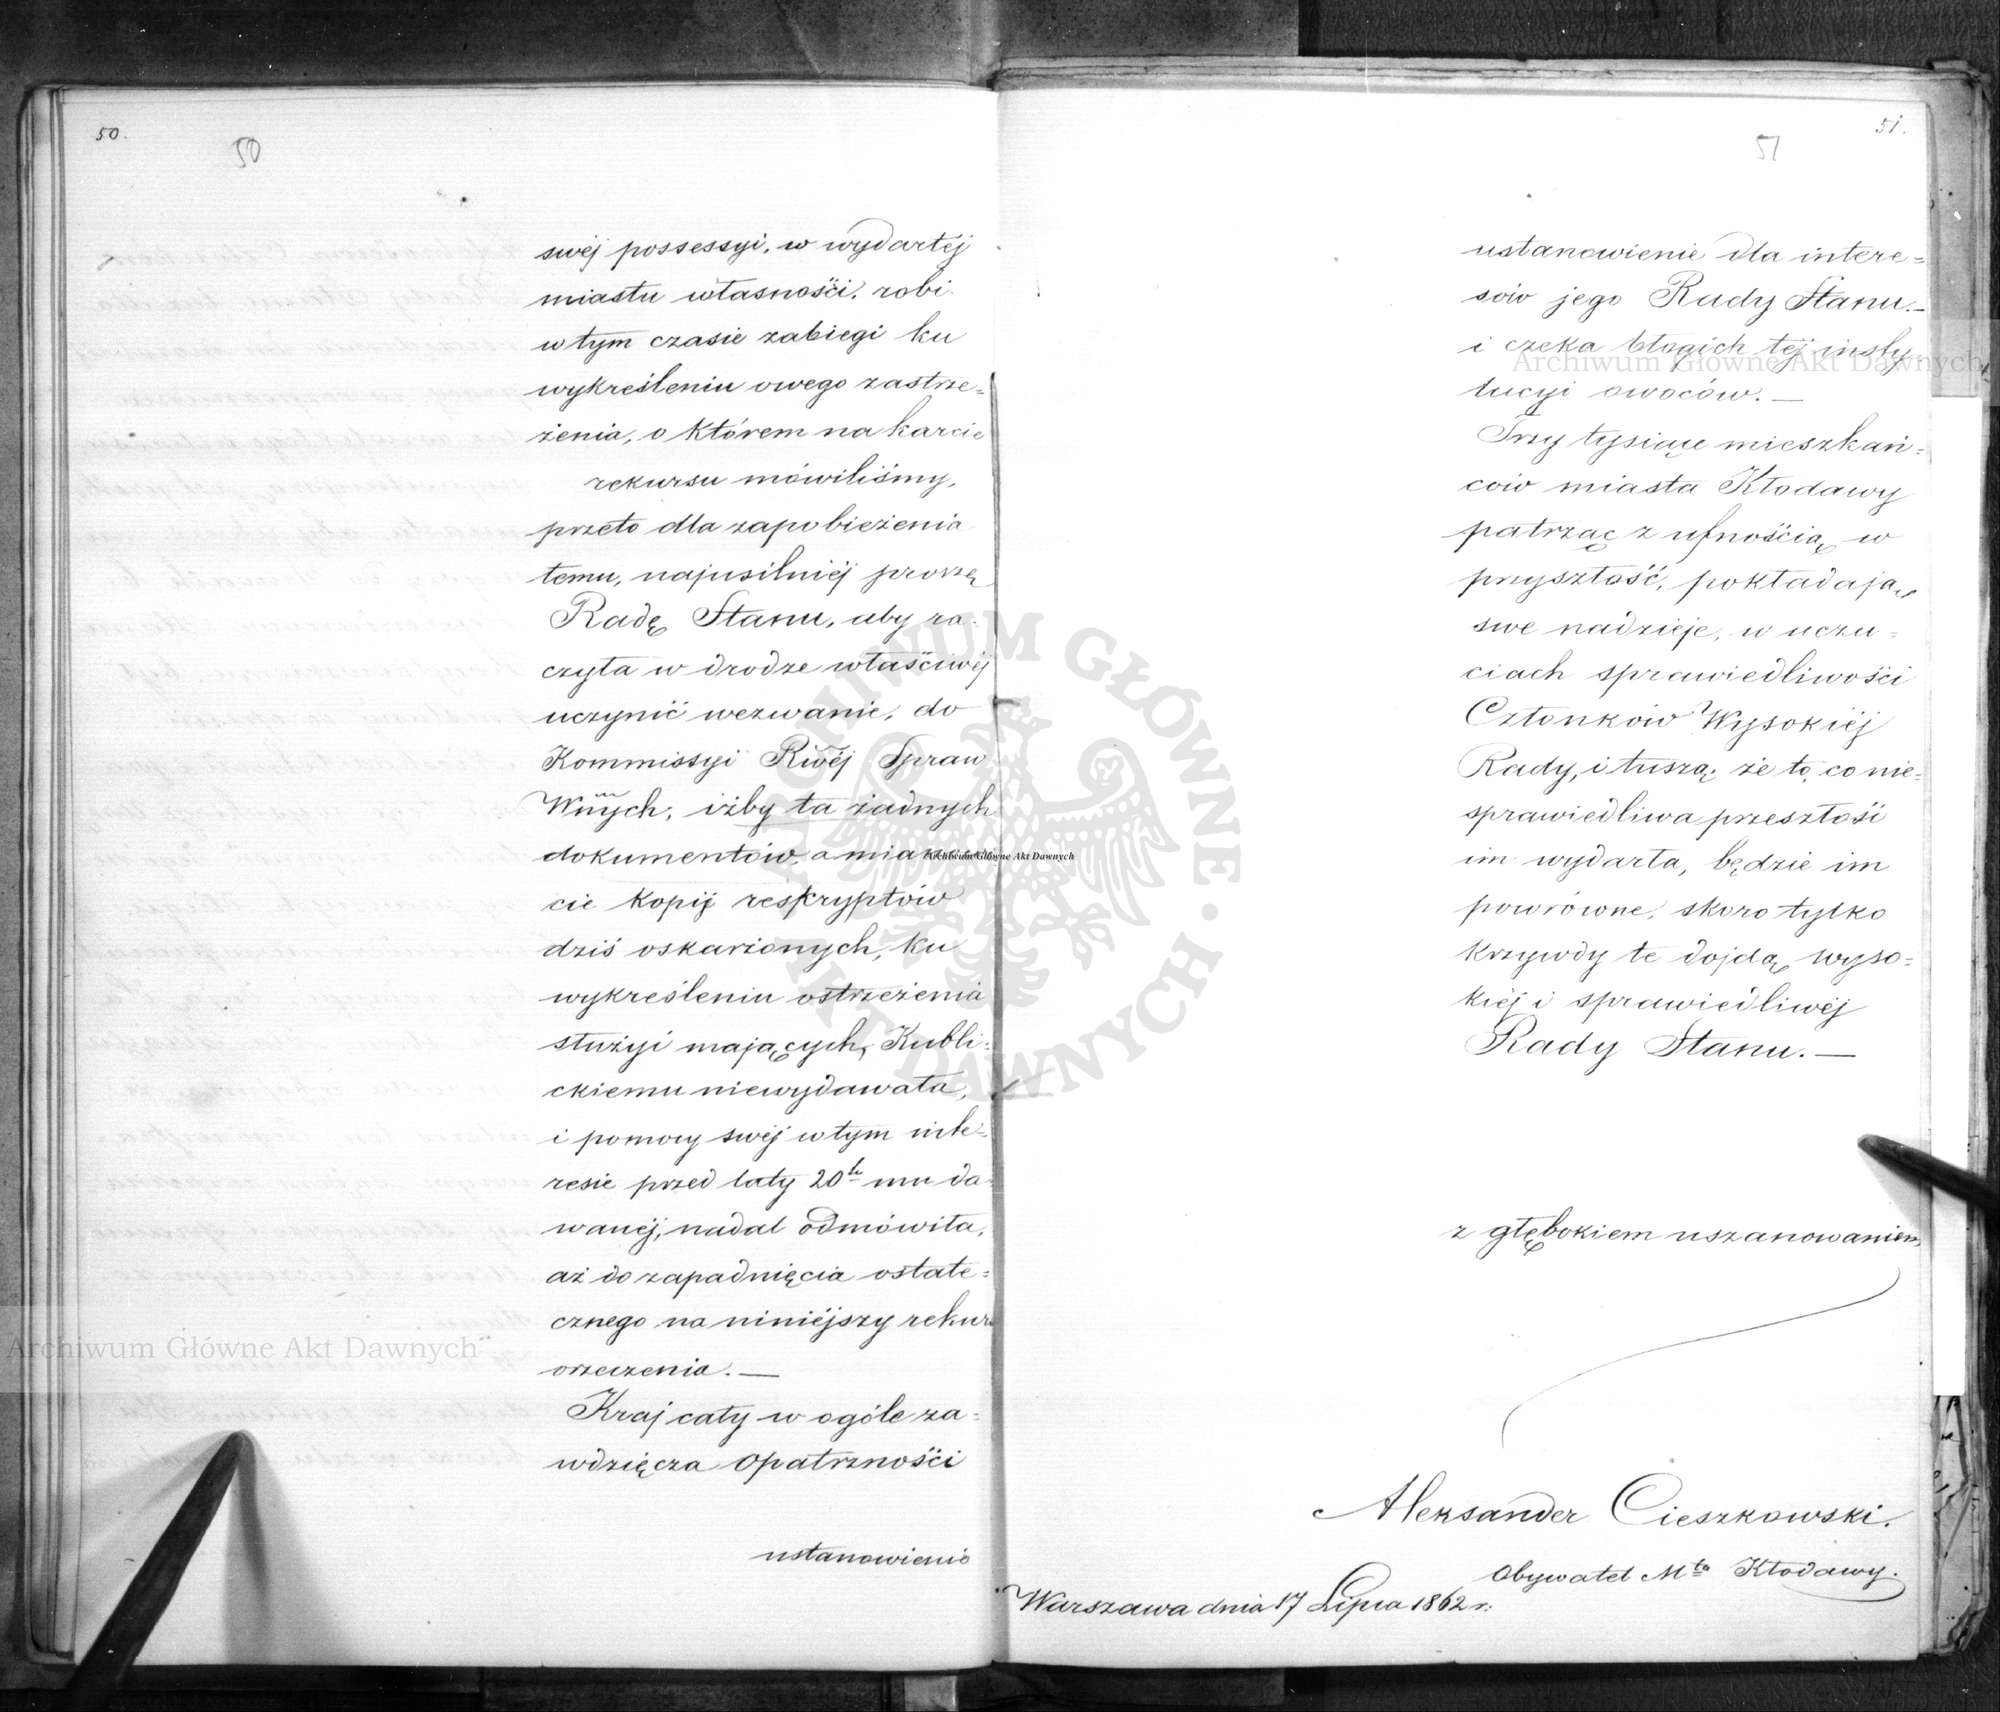 50.
50
swéj possessyi, w wydartéj
miastu własności, robi
w tym czasie zabiegi ku
wykreśleniu owego zastrze=
żenia, o którem na karcie
rekursu mówiliśmy,
przeto dla zapobieżenia
temu, najusilniéj proszę
Radę Stanu, aby ra=
czyła w drodze właściwéj
uczynić wezwanie, do
Kommissyi Rwéj Spraw
Wnnych, iżby ta żadnych
dokumentów, a mianowi
cie kopij reskryptów
dziś oskarżonych, ku
wykreśleniu ostrzeżenia
służyć mających, Kubli=
ckiemu niewydawała,
i pomocy swéj w tym inte=
resie przed laty 20tu mu da
wanéj, nadal odmówiła,
aż do zapadnięcia ostate=
cznego na niniéjszy rekurs
orzeczenia. —
Kraj cały w ogóle za=
wdzięcza Opatrzności
ustanowienie
51.
51
ustanowienie dla intere=
sów jego Rady Stanu. —
i czeka błogich téj insty
tucyi owoców. —
Trzy tysiące mieszkań=
ców miasta Kłodawy
patrząc z ufnością w
przyszłość, pokładają
swe nadzieje, w uczu=
ciach sprawiedliwości
Członków Wysokiéj
Rady, i tuszą, że to, co nie=
sprawiedliwa przeszłość
im wydarła, będzie im
powrócone, skoro tylko
krzywdy te dojdą wyso=
kiéj i sprawiedliwéj
Rady Stanu. —
z głębokiem uszanowaniem,
Aleksander Cieszkowski.
Obywatel Mta Kłodawy.
Warszawa dnia 17 Lipca 1862 r.
Archiwum Główne Akt Dawnych
Archiwum Główne Akt Dawnych
Archiwum Główne Akt Dawnych
ARCHIWUM GŁÓWNE · AKT DAWNYCH ·